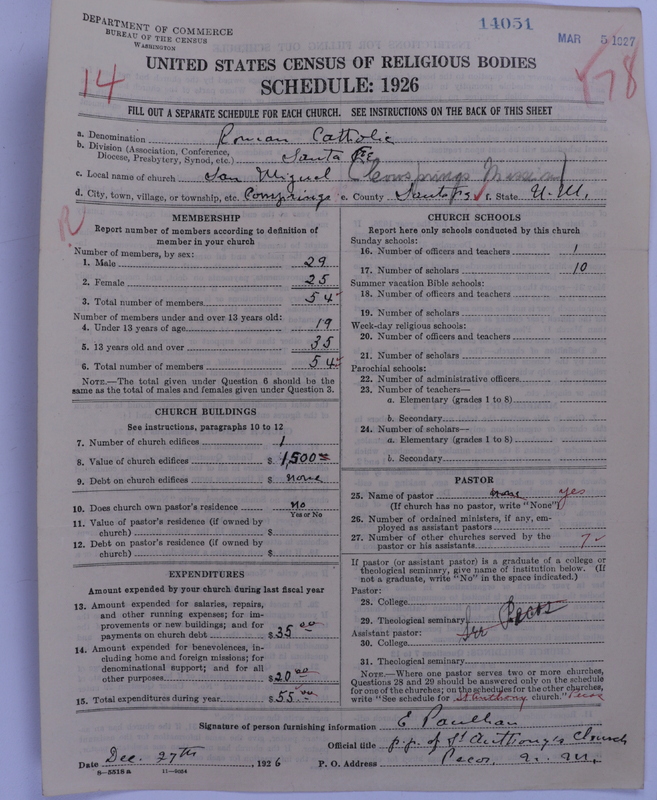 DEPARTMENT OF COMMERCE
BUREAU OF THE CENSUS
WASHINGTON
14051
MAR 5 1927
14
UNITED STATES CENSUS OF RELIGIOUS BODIES
SCHEDULE: 1926
78
FILL OUT A SEPARATE SCHEDULE FOR EACH CHURCH. SEE INSTRUCTIONS ON THE BACK OF THIS SHEET
a. Denomination Roman Catholic
b. Division (Association, Conference,
Diocese, Presbytery, Synod, etc.) Santa Fe
c. Local name of church San Miguel Cowsprings Mission
d. City, town, village, or township, etc. Cowsprings e. County Santa Fe f. State N. M.
R
MEMBERSHIP
Report number of members according to definition of
member in your church
Number of members, by sex:
1. Male 29
2. Female 25
3. Total number of members 54
Number of members under and over 13 years old:
4. Under 13 years of age 19
5. 13 years old and over 35
6. Total number of members 54
NOTE.—The total given under Question 6 should be the
same as the total of males and females given under Question 3.
CHURCH BUILDINGS
See instructions, paragraphs 10 to 12
7. Number of church edifices 1
8. Value of church edifices $ 1,500 00
9. Debt on church edifices $ none
10. Does church own pastor's residence no
Yes or No
11. Value of pastor's residence (if owned by
church) $
12. Debt on pastor's residence (if owned by
church) $
EXPENDITURES
Amount expended by your church during last fiscal year
13. Amount expended for salaries, repairs,
and other running expenses; for im-
provements or new buildings; and for
payments on church debt $ 35 00
14. Amount expended for benevolences, in-
cluding home and foreign missions; for
denominational support; and for all
other purposes $ 20 00
15. Total expenditures during year $ 55 00
CHURCH SCHOOLS
Report here only schools conducted by this church
Sunday schools:
16. Number of officers and teachers 1
17. Number of scholars 10
Summer vacation Bible schools:
18. Number of officers and teachers
19. Number of scholars
Week-day religious schools:
20. Number of officers and teachers
21. Number of scholars
Parochial schools:
22. Number of administrative officers
23. Number of teachers—
a. Elementary (grades 1 to 8)
b. Secondary
24. Number of scholars—
a. Elementary (grades 1 to 8)
b. Secondary
PASTOR
25. Name of pastor none yes
(If church has no pastor, write "None")
26. Number of ordained ministers, if any, em-
ployed as assistant pastors
27. Number of other churches served by the
pastor or his assistants 7
If pastor (or assistant pastor) is a graduate of a college or
theological seminary, give name of institution below. (If
not a graduate, write "No" in the space indicated.)
Pastor:
28. College
29. Theological seminary See Pecos
Assistant pastor:
30. College
31. Theological seminary
NOTE.—Where one pastor serves two or more churches,
Questions 28 and 29 should be answered only on the schedule
for one of the churches; on the schedules for the other churches,
write "See schedule for St Anthony church." Pecos
Signature of person furnishing information E Paulhan
Official title p.p. of St Anthony's Church
Date Dec. 27th, 1926 P. O. Address Pecos, N. M.
8—5518a 11—9064